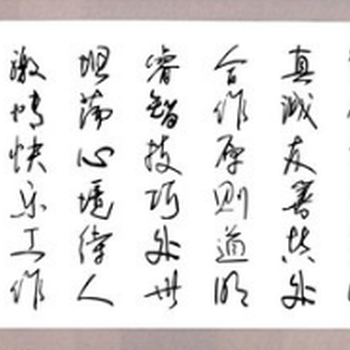 真诚友善共处
合作原则道明
睿智技巧处世
坦荡心境待人
激情快乐工作